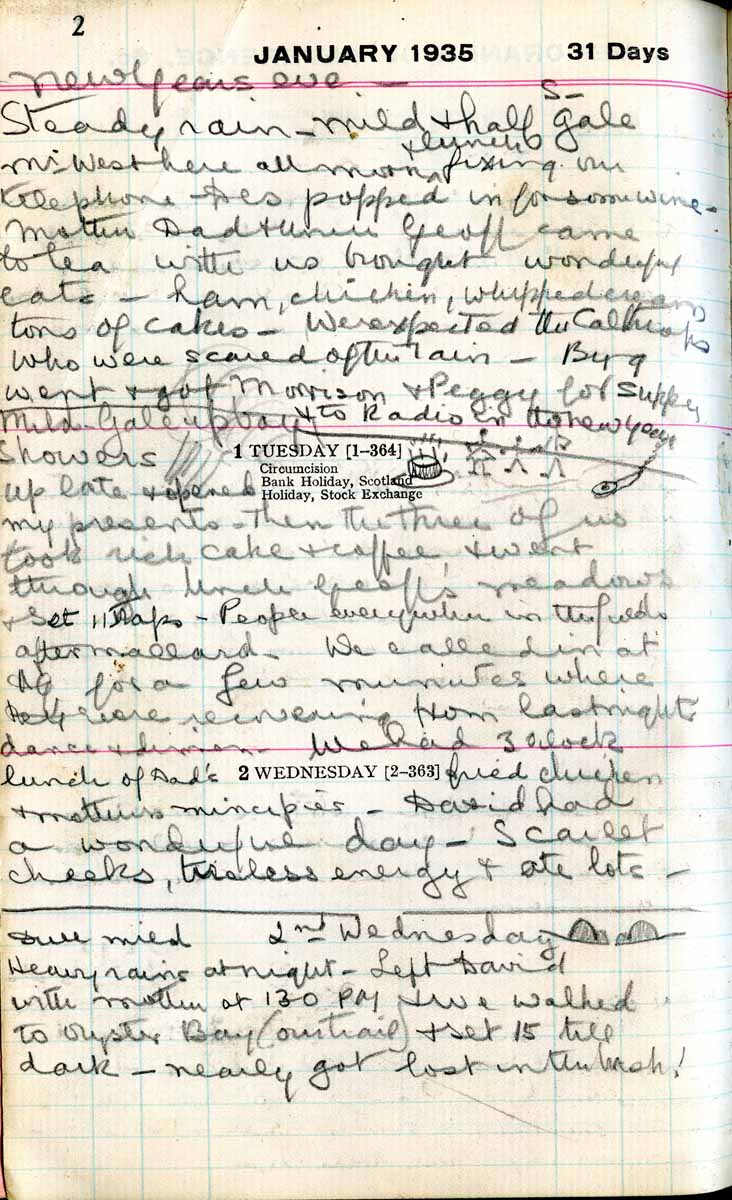 2
JANUARY 1935 31 Days
New Years eve —
S-
Steady rain - mild & half gale
& lunch
Mr West here all morn fixing our
telephone - Des popped in for some wine -
Mother Dad & Uncle Geoff came
to tea with us brought wonderful
eats - ham, chicken, whipped cream
tons of cakes - We expected the Calthrops
who were scared of the rain -
went & got Morrison & Peggy for supper
& to Radio in the new year
Mild - Gale up bay
Showers
1 TUESDAY [1–364]
Circumcision
Bank Holiday, Scotland
Holiday, Stock Exchange
up late & opened
my presents - then the three of us
took rich cake & coffee & went
through Uncle Geoff's meadows
& set 11 traps - People everywhere in the fields
after mallard - We called in at
for a few minutes where
they were recovering from last nights
dance & dinner - We had 3 oclock
lunch of Dad's
2 WEDNESDAY [2–363]
fried chicken
& mothers mincepies - David had
a wonderful day - Scarlet
cheeks, tireless energy & ate lots -
Dull mild 2nd Wednesday
Heavy rains at night - Left David
with mother at 130 PM & we walked
to Oyster Bay (our trail) & set 15 till
dark - nearly got lost in the bush!